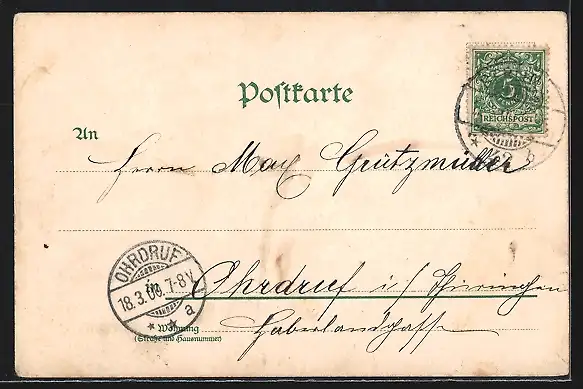 Postkarte
5
REICHSPOST
An
Herrn Max Grützmüller
OHRDRUF
18.3.00.7-8V.
a
in Ohrdruf i/Thüringen
Wohnung
(Straße und Hausnummer)
Haberlandgasse